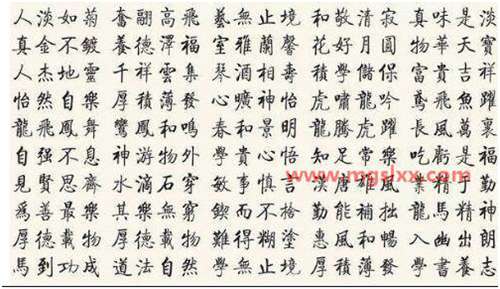 人淡如菊 奮翮高飛 藝無止境 和敬清寂 真味是淡
真金不鍍 養德澤福 室雅蘭馨 花好月圓 物華天寶
人杰地靈 千祥雲集 琴 相壽 積學儲保 富貴吉祥
怡然自樂 厚積薄發 曠神怡 虎嘯龍吟 鳶飛魚躍
龍飛鳳舞 鸞鳳和鳴 春和景明 龍騰虎躍 長風萬裏
自强不息 神游物外 學貴心悟 知足常樂 吃虧是福
見賢思齊 水滴石穿 敏事慎言 漢唐雄風 業精于勤
爲善最樂 其樂無窮 鍥而不捨 勤能補拙 龍馬精神
厚德載物 厚德載物 難得糊塗 惠風和暢 入幽出朗
馬到功成 道法自然 學無止境 厚積薄發 學書養志
www.mgslxx.com